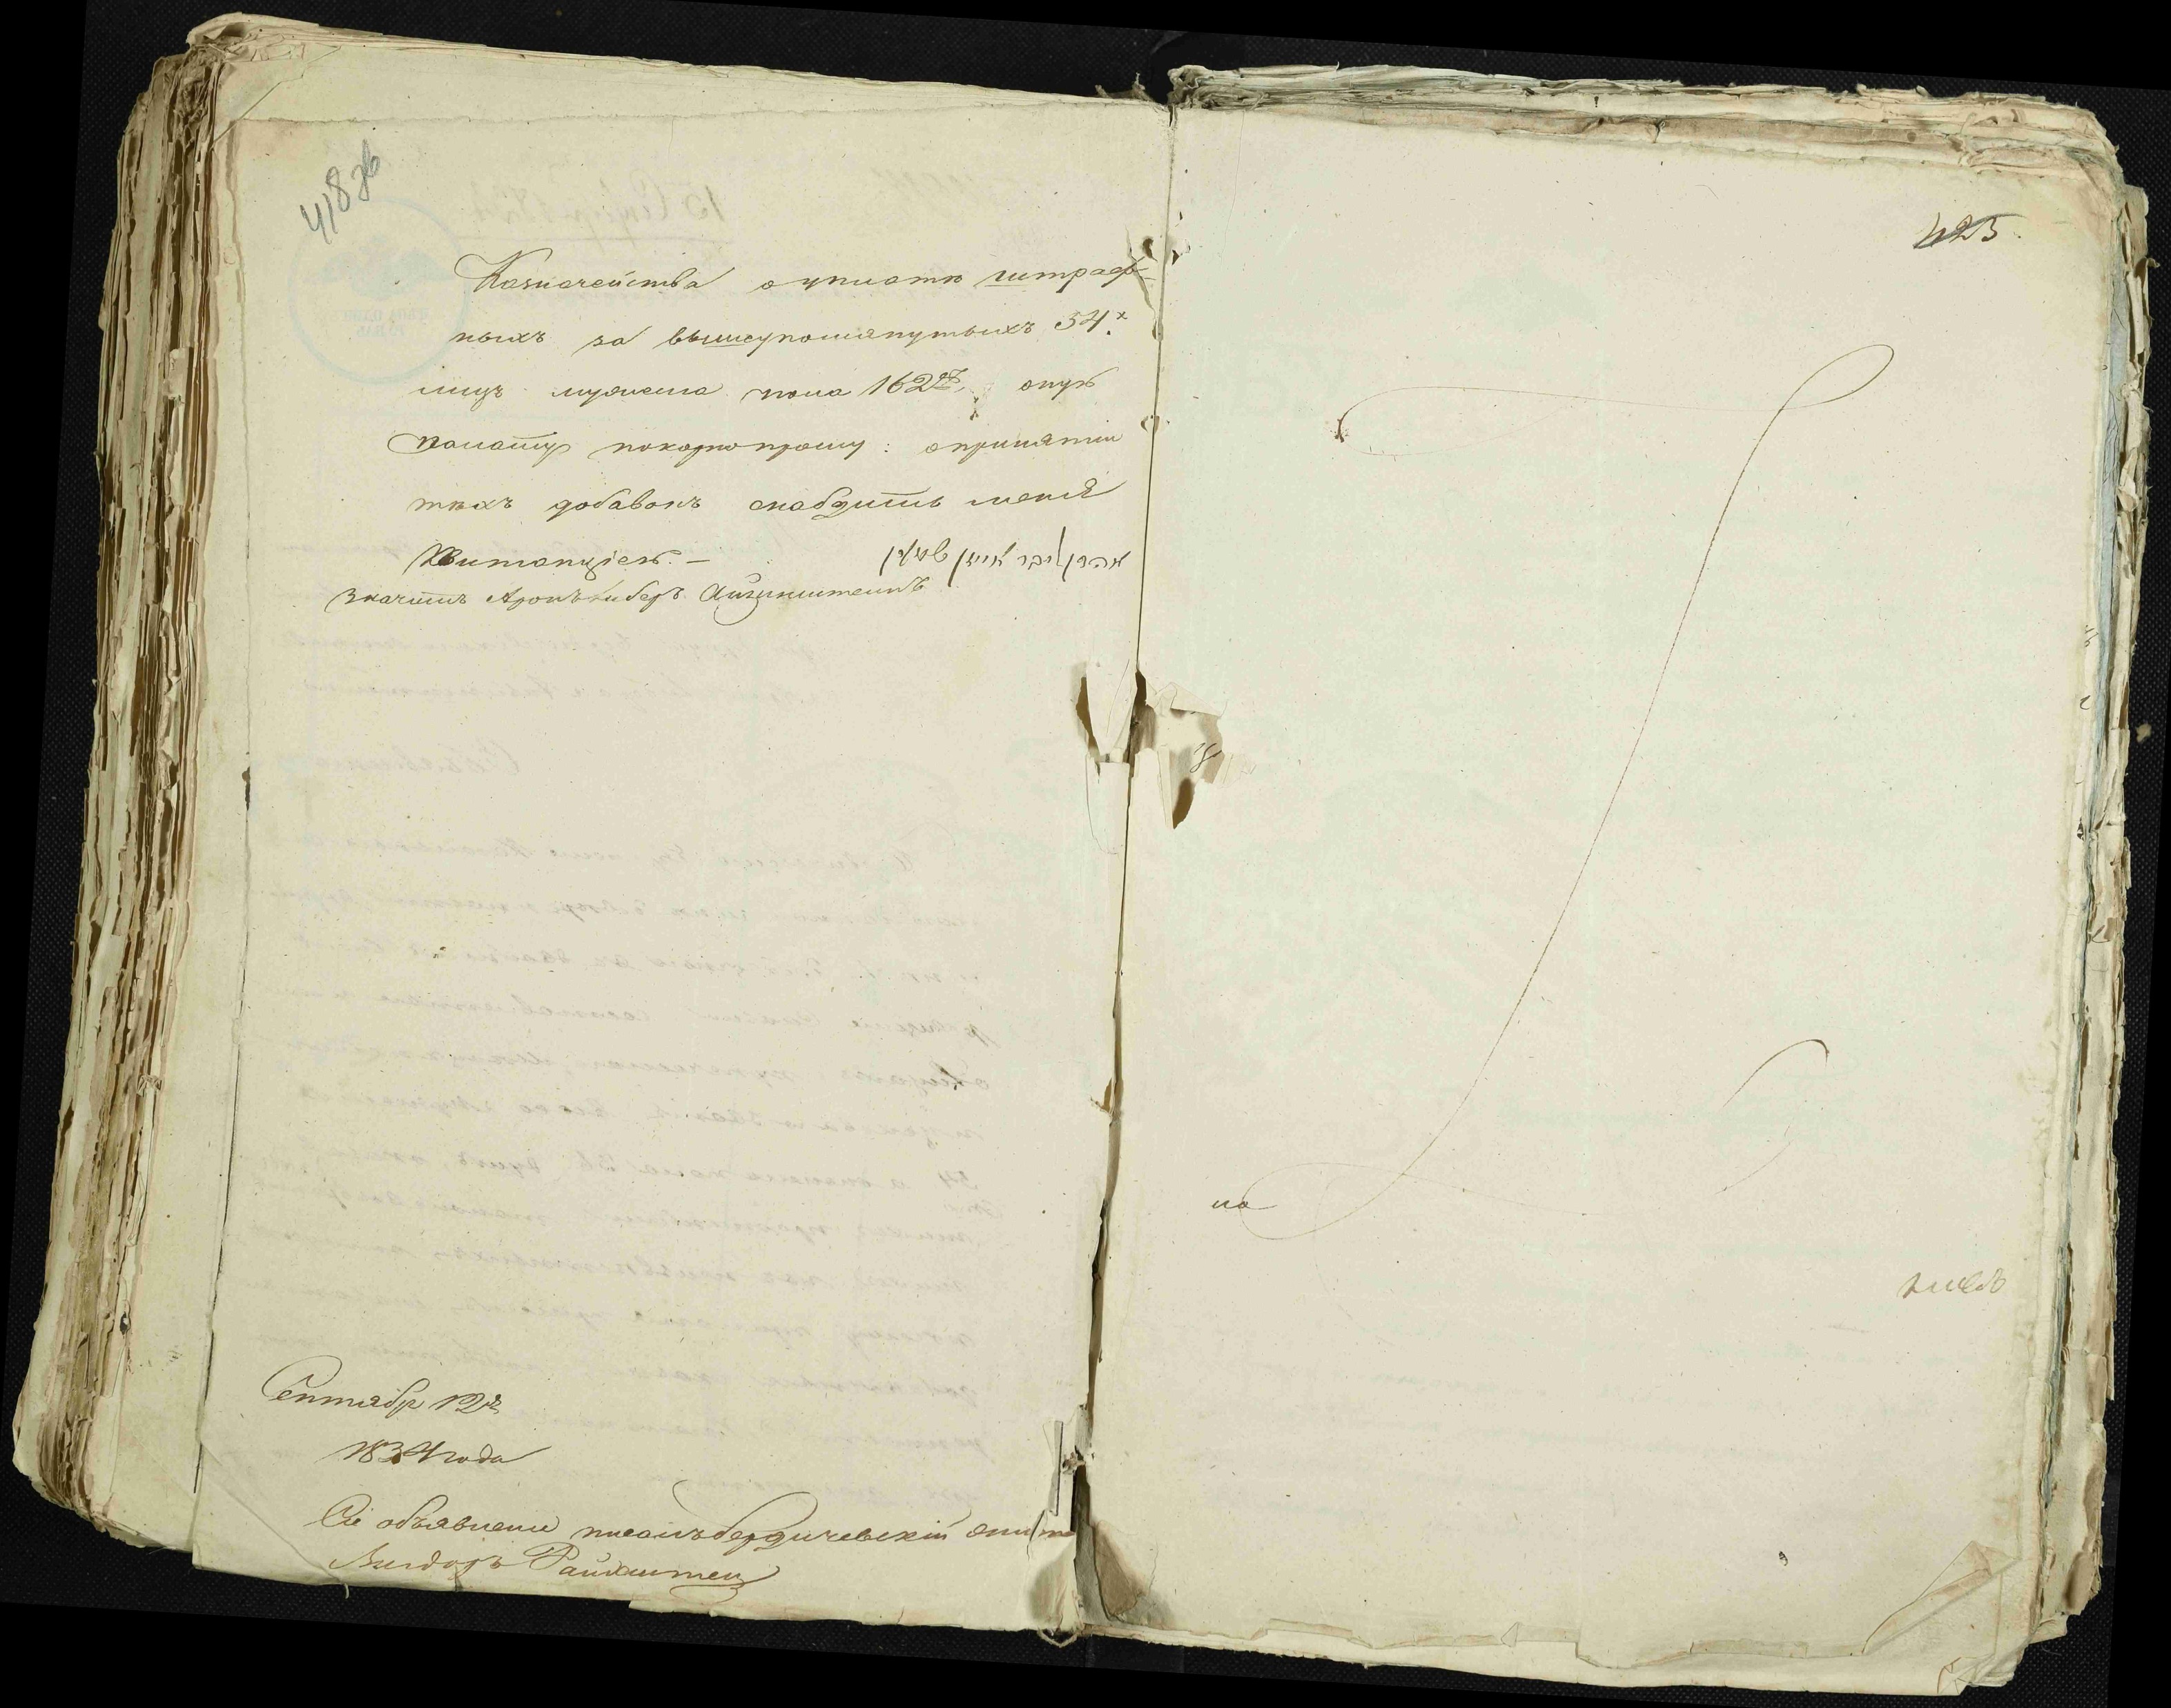 418 об
Казначейства о уплатѣ штраф-
ныхъ за вышеупомянутыхъ 54х
лицъ мужеска пола 162 р. онуѣ
палату покорнопрошу: опринятіи
тѣхъ добавокъ снабдить меня
Квитанціею. — אהרן ליבר אייזן שטיין
Значитъ Аронъ Либеръ Айзинштейнъ
Сентября 12 д.
1834 года
Сіе объявленіе писалъ бердичевскій
Вигдоръ Райхштен
425.
на